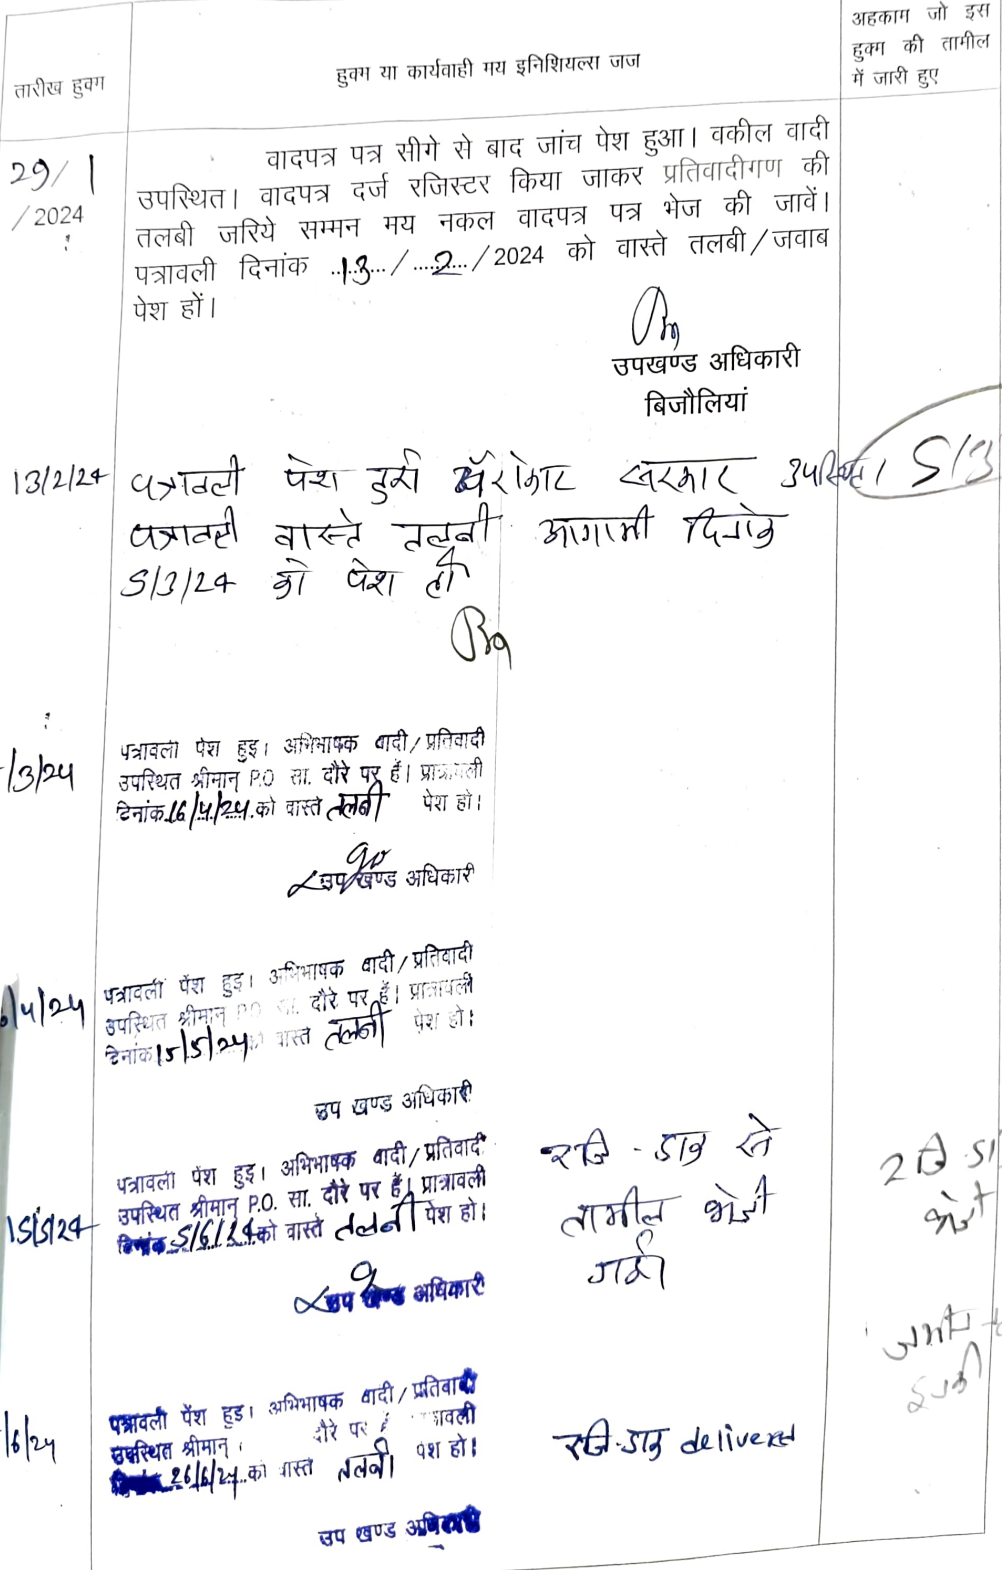 तारीख हुक्म
हुक्म या कार्यवाही मय इनिशियल्स जज
अहकाम जो इस
हुक्म की तामील
में जारी हुए
29/1
/2024
वादपत्र पत्र सीगे से बाद जांच पेश हुआ। वकील वादी
उपस्थित। वादपत्र दर्ज रजिस्टर किया जाकर प्रतिवादीगण की
तलबी जरिये सम्मन मय नकल वादपत्र पत्र भेज की जावें।
पत्रावली दिनांक 13/2/2024 को वास्ते तलबी/जवाब
पेश हों।
उपखण्ड अधिकारी
बिजौलियां
13/2/24
पत्रावली पेश हुई पॅरोकार सरकार उपस्थित।
5/3
पत्रावली वास्ते तलबी आगामी दिनांक
5/3/24 को पेश हो
/3/24
पत्रावली पेश हुइ। अभिभाषक वादी/प्रतिवादी
उपस्थित श्रीमान् P.O सा. दौरे पर हैं। प्रात्रावली
दिनांक 16/4/24 को वास्ते तलबी पेश हो।
उप खण्ड अधिकारी
/4/24
पत्रावली पेंश हुइ। अभिभाषक वादी/प्रतिवादी
उपस्थित श्रीमान् P.O सा. दौरे पर हैं। प्रात्रावली
दिनांक 15/5/24 वास्त तलबी पेश हो।
उप खण्ड अधिकारी
15/5/24
पत्रावली पेंश हुइ। अभिभाषक वादी/प्रतिवादी
उपस्थित श्रीमान् P.O. सा. दौरे पर हैं। प्रात्रावली
दिनांक 5/6/24 को वास्ते तलबी पेश हो।
उप खण्ड अधिकारी
रजि-डाक से
तामील भेजी
गई
रजि डा
भेजी
/6/24
पत्रावली पेंश हुइ। अभिभाषक वादी/प्रतिवादी
उपस्थित श्रीमान् दौरे पर त्रावली
26/6/24 को वास्त तलबी पेश हो।
उप खण्ड अधिकारी
रजि-डाक delivered